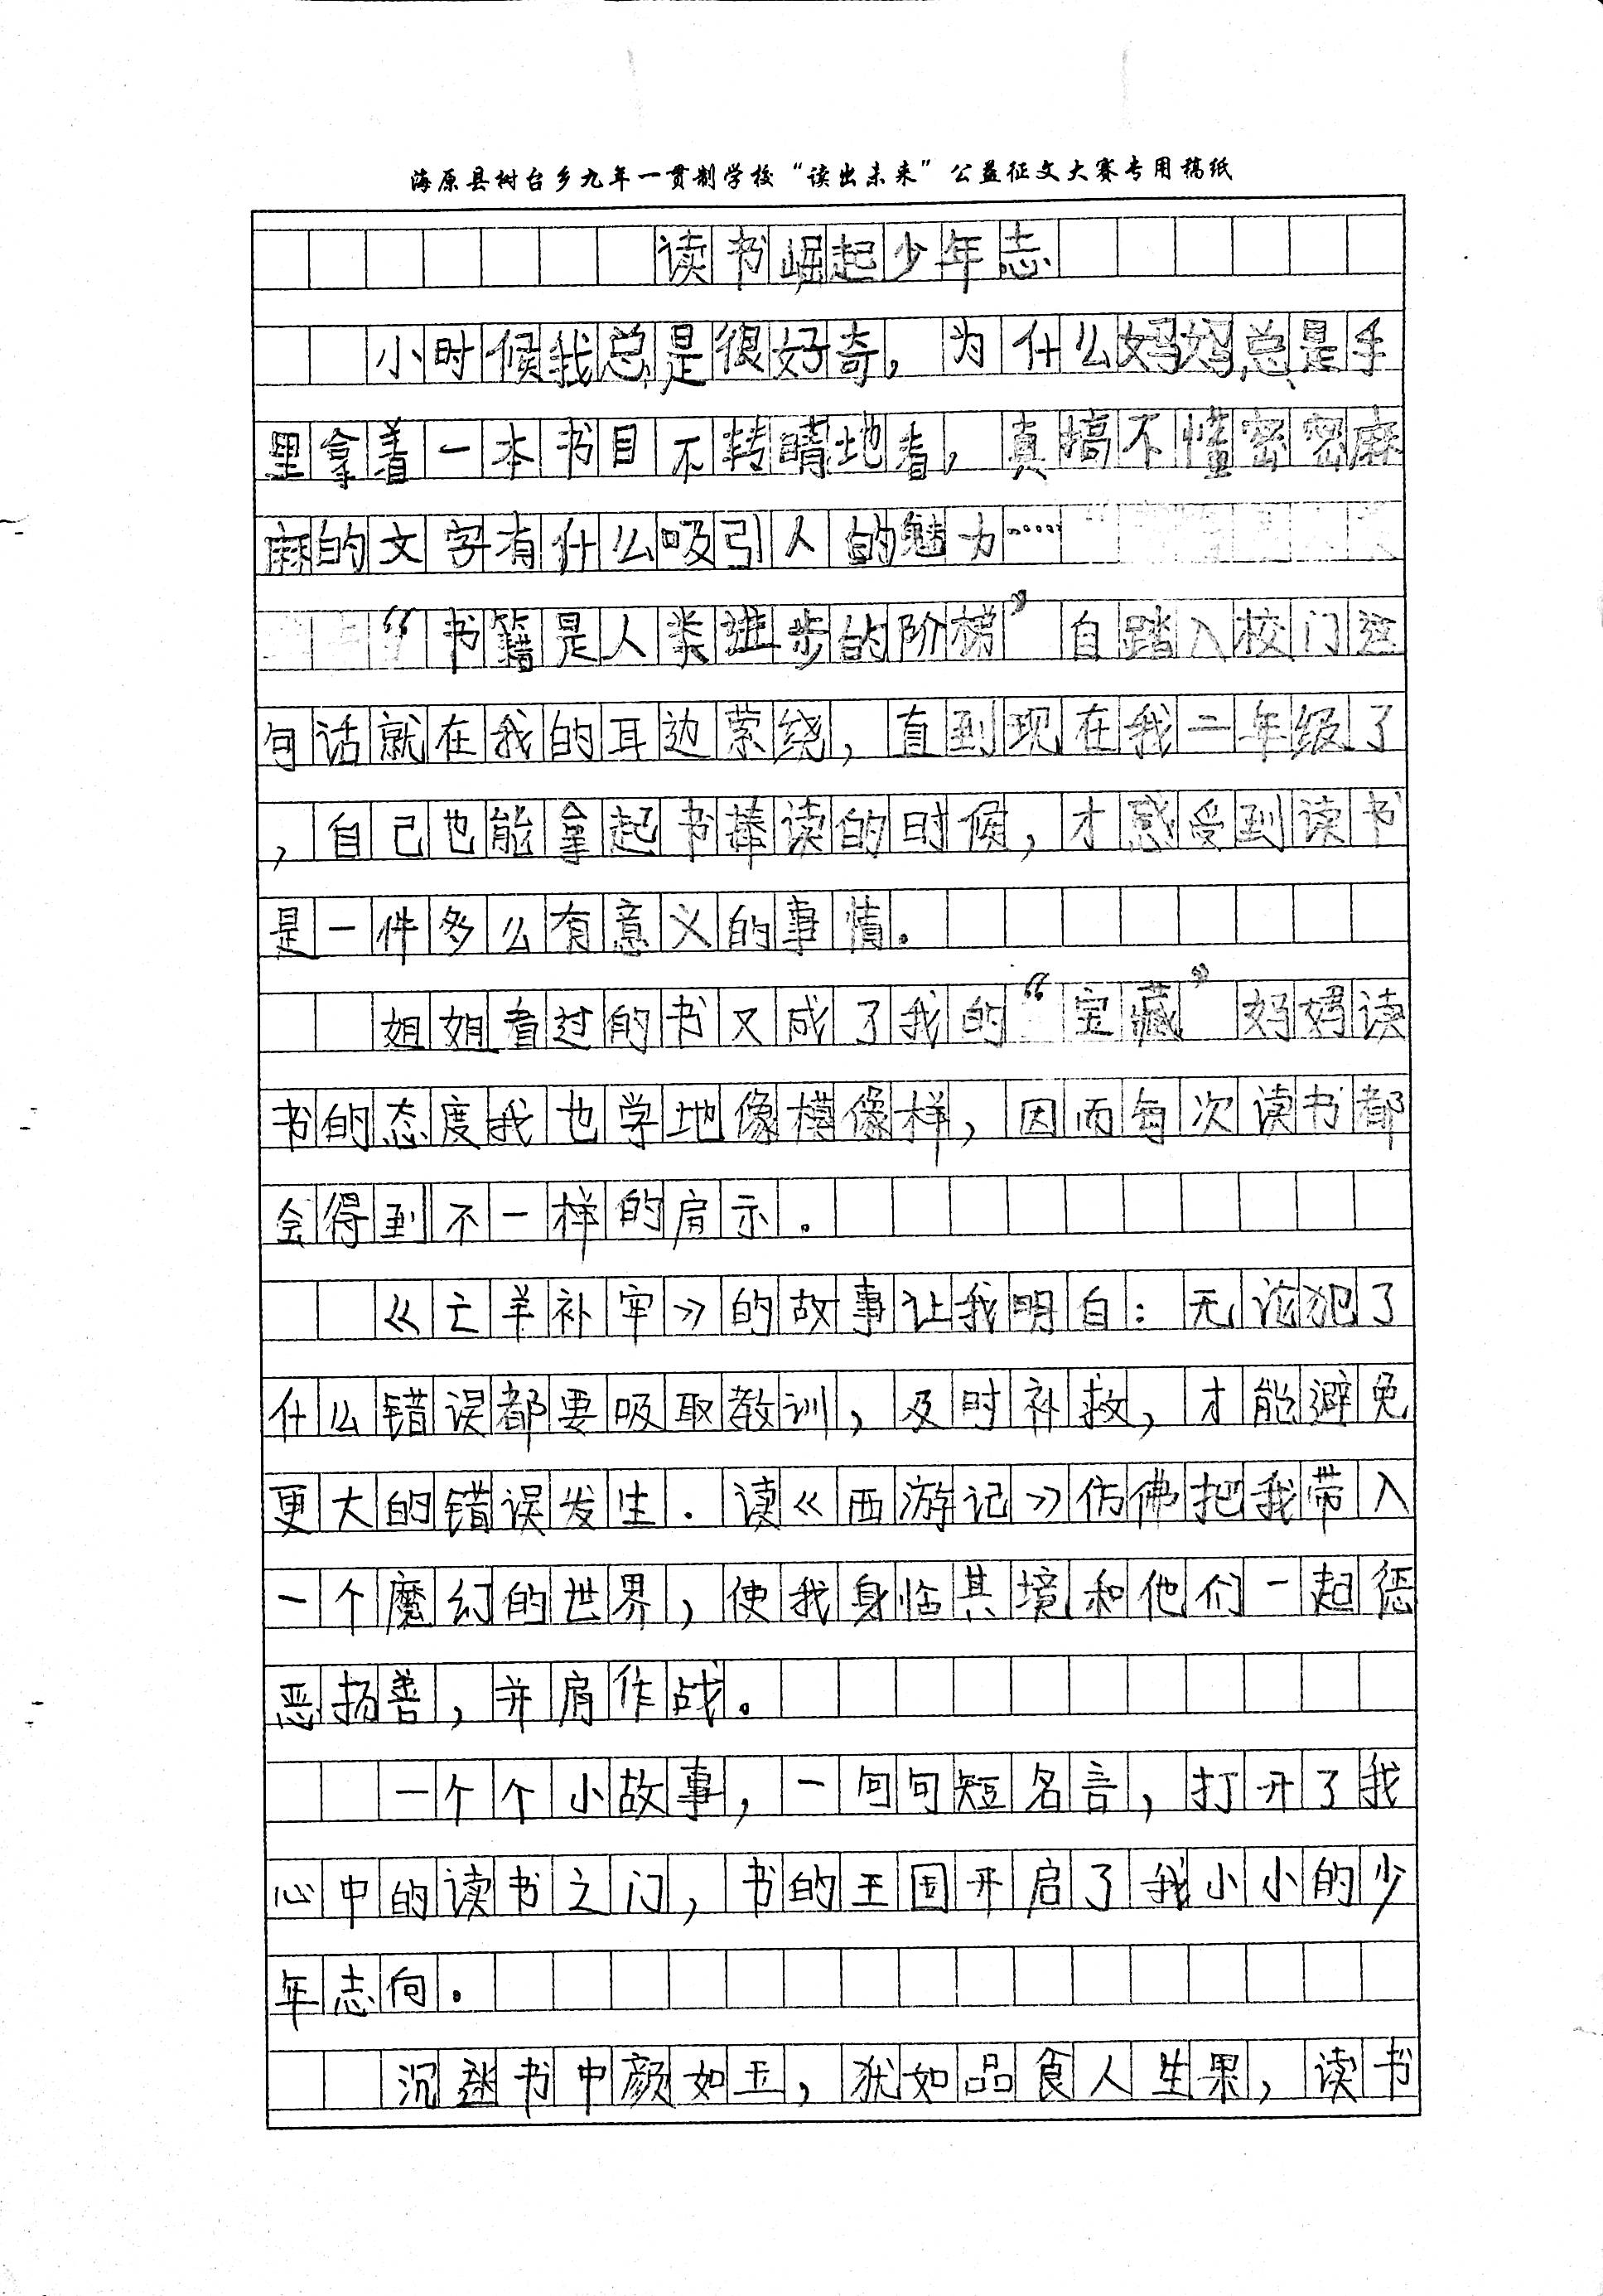 海原县树台乡九年一贯制学校“读出未来”公益征文大赛专用稿纸
读书崛起少年志
小时候我总是很好奇，为什么妈妈总是手
里拿着一本书目不转晴地看，真搞不懂密密麻
麻的文字有什么吸引人的魅力……
“书籍是人类进步的阶梯”自踏入校门这
句话就在我的耳边萦绕，直到现在我二年级了
，自己也能拿起书捧读的时候，才感受到读书
是一件多么有意义的事情。
姐姐看过的书又成了我的“宝藏”妈妈读
书的态度我也学地像模像样，因而每次读书都
会得到不一样的启示。
《亡羊补牢》的故事让我明白：无论犯了
什么错误都要吸取教训，及时补救，才能避免
更大的错误发生．读《西游记》仿佛把我带入
一个魔幻的世界，使我身临其境和他们一起惩
恶扬善，并肩作战。
一个个小故事，一句句短名言，打开了我
心中的读书之门，书的王国开启了我小小的少
年志向。
沉迷书中颜如玉，犹如品食人生果，读书